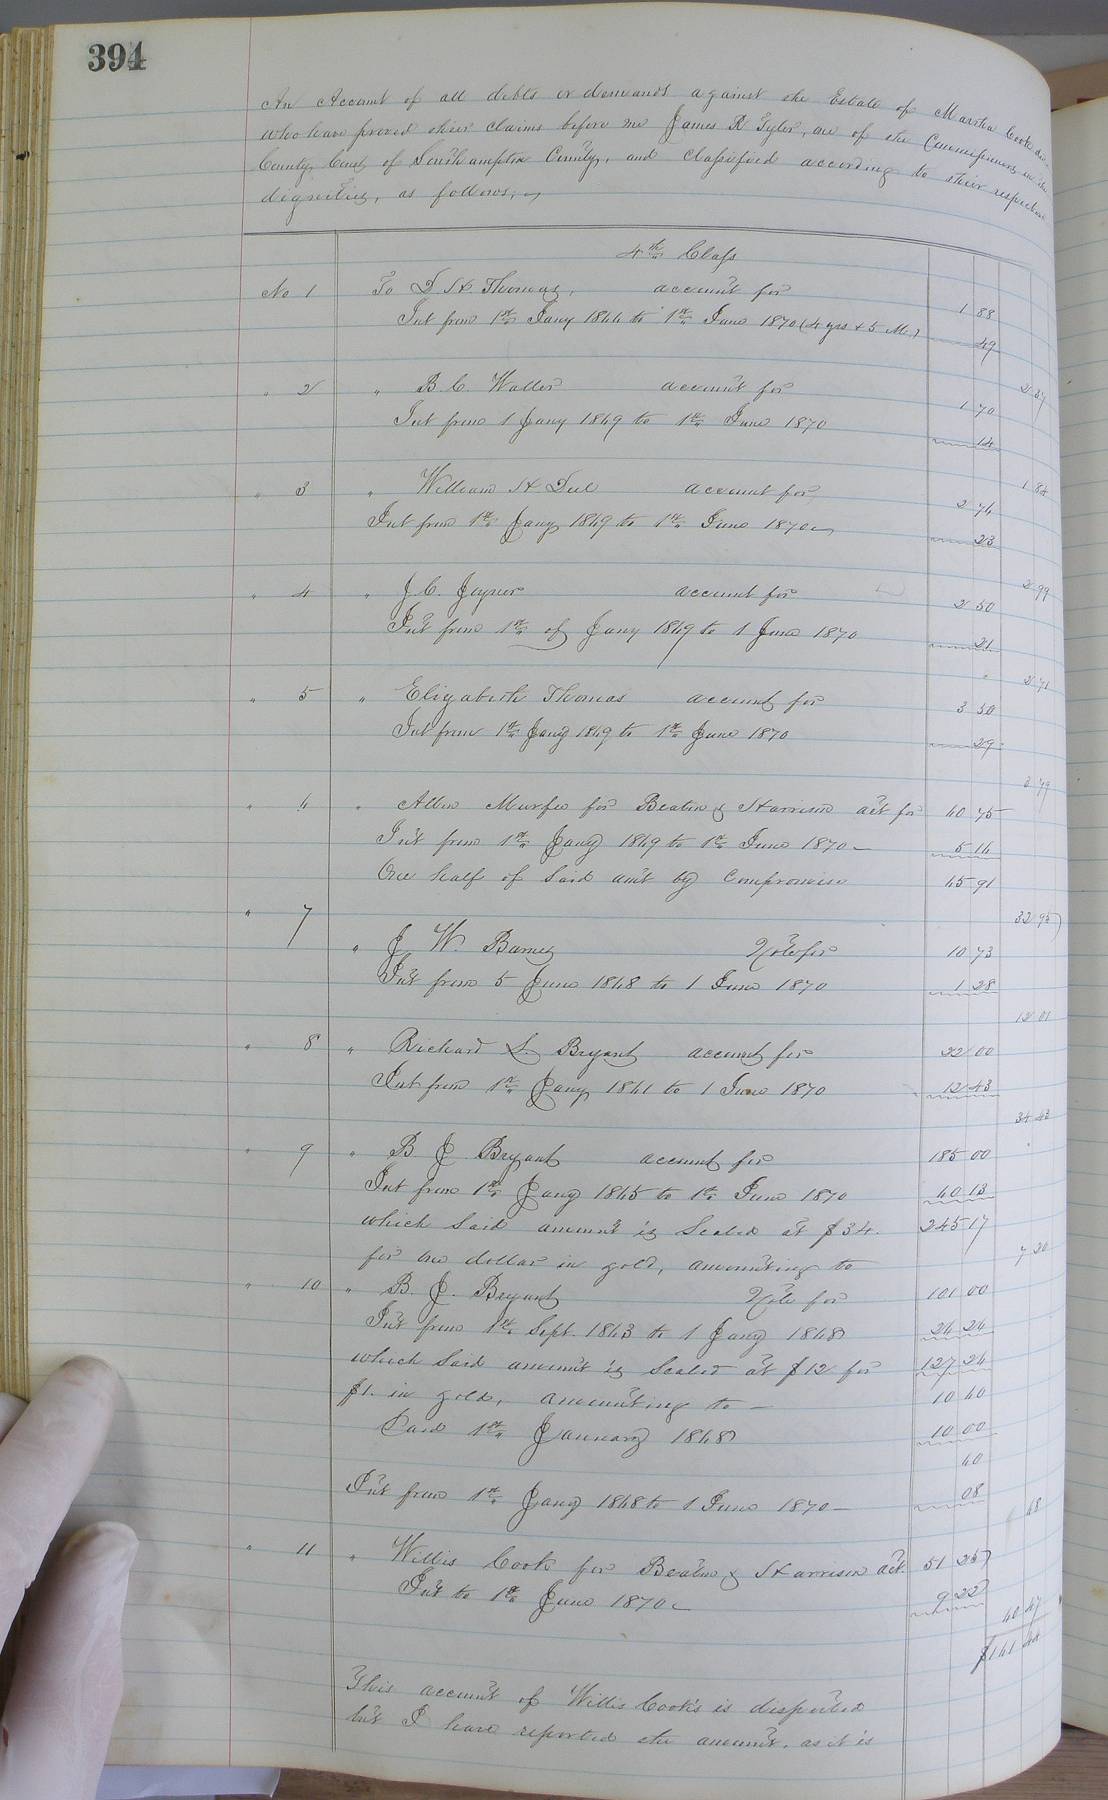 394
An Account of all debts or demands against the Estate of Martha Cook dec
who have proved their claims before me James R Tyler, one of the Commissioners in the
County Court of Southampton County, and classified according to their respective
dignities, as follows,
4th Class
No 1 To D. H. Thomas, account for 1 88
Int from 1st Jany 1866 to 1st June 1870 (4 yrs & 5 M.) 49
2 37
" 2 " B. C. Waller account for 1 70
Int from 1 Jany 1869 to 1st June 1870 14
1 84
" 3 " William H Dul account for 2 76
Int from 1st Jany 1869 to 1st June 1870 23
2 99
" 4 " J. C. Joyner account for 2 50
Int from 1st of Jany 1869 to 1 June 1870 21
2 71
" 5 " Elizabeth Thomas account for 3 50
Int from 1st Jany 1869 to 1st June 1870 29
3 79
" 6 " Allen Murfee for Beaton & Harrison act for 60 75
Int from 1st Jany 1869 to 1st June 1870 5 16
One half of said amt by compromise 65 91
32 95
" 7 " J W. Barnes Note for 10 73
Int from 5 June 1868 to 1 June 1870 1 28
12 01
" 8 " Richard L. Bryant account for 22 00
Int from 1st Jany 1861 to 1 June 1870 12 43
34 43
" 9 " B J. Bryant account for 185 00
Int from 1st Jany 1865 to 1st June 1870 60 13
which said amount is Scaled at $34. 245 17
for one dollar in gold, amounting to 7 20
" 10 " B. J. Bryant Note for 101 00
Int from 1st Sept. 1863 to 1 Jany 1868 26 24
which said amount is Scaled at $12 for 127 24
$1. in gold, amounting to 10 60
Paid 1st January 1868 10 00
60
Int from 1st Jany 1868 to 1 June 1870 08
68
" 11 " Willis Cook for Beaton & Harrison act. 51 25
Int to 1st June 1870 9 22
60 47
$161 44
This account of Willis Cook's is disputed
but I have reported the amount. as it is